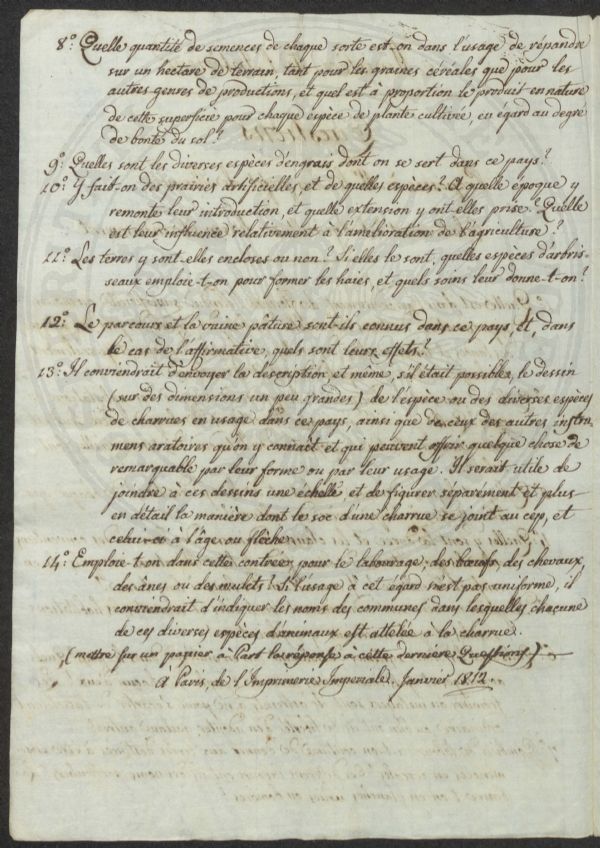 8.° Quelle quantité de semences de chaque sorte est-on dans l'usage de répandre
sur un hectare de terrain, tant pour les graines céréales que pour les
autres genres de productions, et quel est à proportion le produit en nature
de cette superficie pour chaque espèce de plante cultivée, eu égard au degré
de bonté du sol?
9.° Quelles sont les diverses espèces d'engrais dont on se sert dans ce pays?
10.° Y fait-on des prairies artificielles, et de quelles espèces? À quelle époque y
remonte leur introduction, et quelle extension y ont-elles prise? Quelle
est leur influence relativement à l'amélioration de l'agriculture?
11.° Les terres y sont-elles encloses ou non? Si elles le sont, quelles espèces d'arbris-
seaux emploie-t-on pour former les haies, et quels soins leur donne-t-on?
12.° Le parcours et la vaine pâture sont-ils connus dans ce pays, et, dans
le cas de l'affirmative, quels sont leurs effets?
13.° Il conviendrait d'envoyer la description et même, s'il était possible, le dessin
(sur des dimensions un peu grandes) de l'espèce ou des diverses espèces
de charrues en usage dans ce pays, ainsi que de ceux des autres instru-
mens aratoires qu'on y connaît et qui peuvent offrir quelque chose de
remarquable par leur forme ou par leur usage. Il serait utile de
joindre à ces dessins une échelle et de figurer séparément et plus
en détail la manière dont le soc d'une charrue se joint au cep, et
celui-ci à l'âge ou flèche.
14.° Emploie-t-on dans cette contrée, pour le labourage, des bœufs, des chevaux,
des ânes ou des mulets? Si l'usage à cet égard n'est pas uniforme, il
conviendrait d'indiquer les noms des communes dans lesquelles chacune
de ces diverses espèces d'animaux est attelée à la charrue.
(mettre sur un papier à Part la réponse à cette dernière Questions)
À Paris, de l'Imprimerie Imperiale. Janvier 1812.